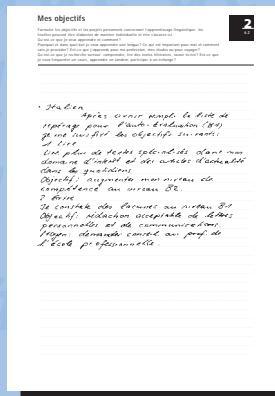 Mes objectifs
Formuler les objectifs et les projets personnels concernant l'apprentissage linguistique; les
feuilles peuvent être élaborées de manière individuelle et être classées ici
Où est-ce que je veux apprendre et comment?
Pourquoi et dans quel but je veux apprendre une langue? Ce qui est important pour moi et comment
vais-je procéder? Est-ce que j'apprends pour ma profession, mes études ou pour voyager?
Où est-ce que je recherche surtout: comprendre, lire des textes littéraires, savoir écrire? Est-ce que
je veux fréquenter un cours, apprendre en tandem, participer à un échange?
2
6.2
• Italien
Après avoir rempli la liste de
repérage pour l'auto-évaluation (B1)
je me suis fixé les objectifs suivants:
1 Lire
Lire plus de textes spécialisés dans mon
domaine d'intérêt et des articles d'actualité
dans les quotidiens
Objectif: augmenter mon niveau de
compétence au niveau B2.
2 Écrire
Je constate des lacunes au niveau B1
Objectif: rédaction acceptable de lettres
personnelles et de communications.
Moyen: demander conseil au prof. de
l'école professionnelle.